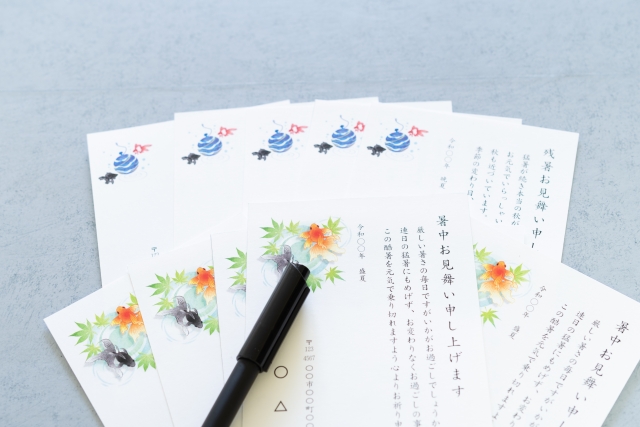 残暑お見舞い申し
猛暑が続き本当の秋が
お元気でいらっしゃい
秋も近づいています。
季節の変わり目
令和〇〇年
暑中お見舞い申し上げます
厳しい暑さの毎日ですがいかがお過ごしでしょうか
連日の猛暑にもめげず、お変わりなくお過ごしの事
この酷暑を元気で乗り切れますよう心よりお祈り申
令和〇〇年 盛夏
〒123
4567
〇〇市〇〇町〇
〇△
暑中お見舞い申
厳しい暑さの毎日ですがい
連日の猛暑にもめげず、お変
この酷暑を元気で乗り切れます
令和〇〇年 盛夏